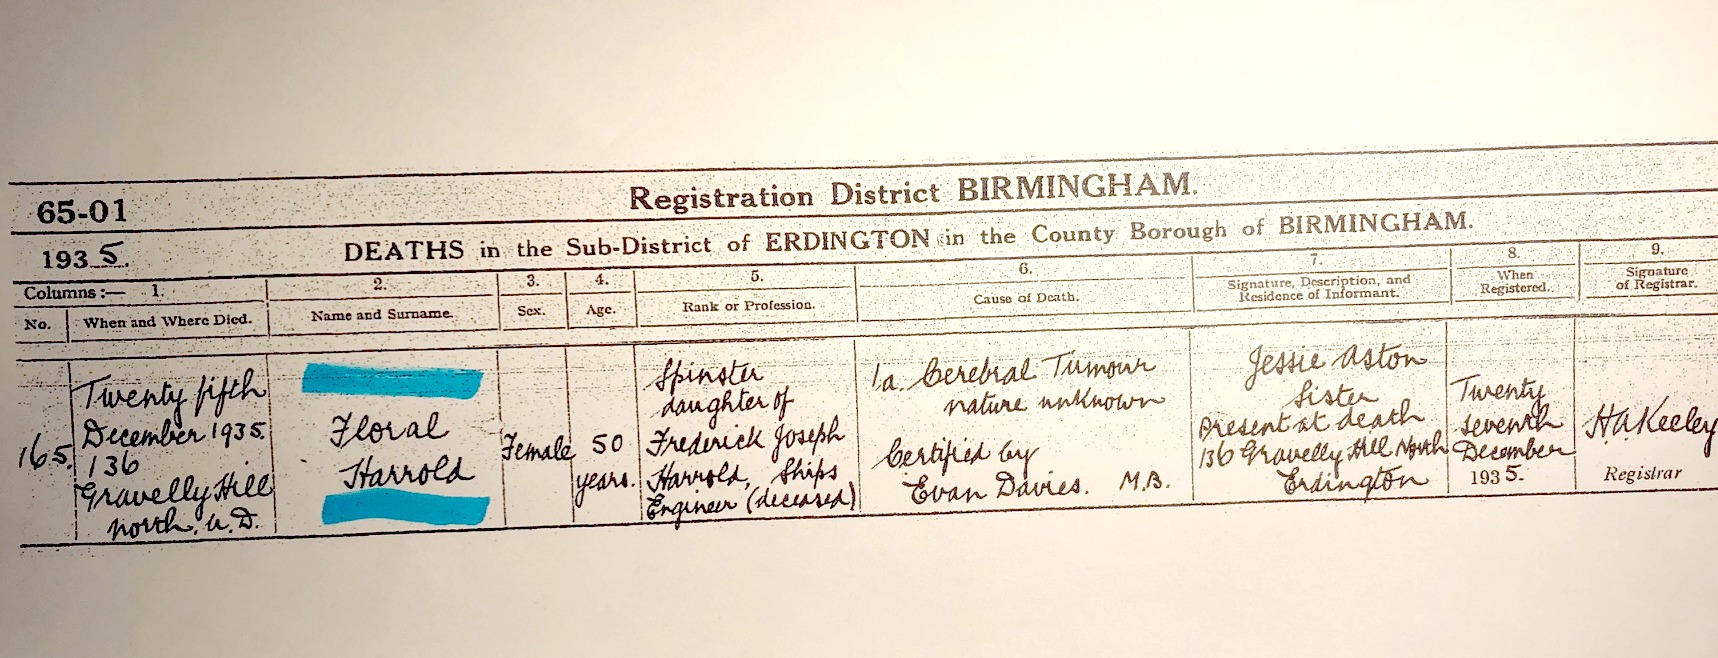 Registration District BIRMINGHAM.
65-01
1935.
DEATHS in the Sub-District of ERDINGTON in the County Borough of BIRMINGHAM.
Columns:— 1. 2. 3. 4. 5. 6. 7. 8. 9.
No.
When and Where Died.
Name and Surname.
Sex.
Age.
Rank or Profession.
Cause of Death.
Signature, Description, and
Residence of Informant.
When
Registered.
Signature
of Registrar.
165.
Twenty fifth
December 1935.
136
Gravelly Hill
North. U.D.
Floral
Harrold
Female
50
years.
Spinster
daughter of
Frederick Joseph
Harrold, Ships
Engineer (deceased)
1a. Cerebral Tumour
nature unknown
Certified by
Evan Davies. M.B.
Jessie Aston
Sister
Present at death
136 Gravelly Hill North
Erdington
Twenty
seventh
December
1935.
H.A. Keeley
Registrar